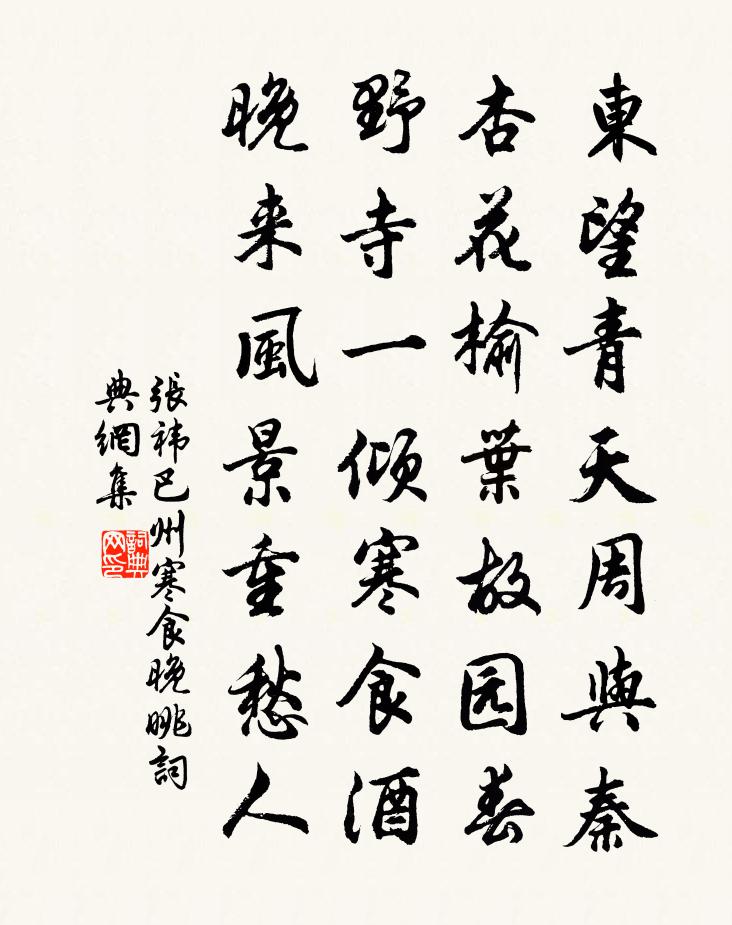 東望青天周與秦
杏花榆葉故园春
野寺一傾寒食酒
晚来風景重愁人
張禕巴州寒食晚眺詞
典網集
詞典
网印